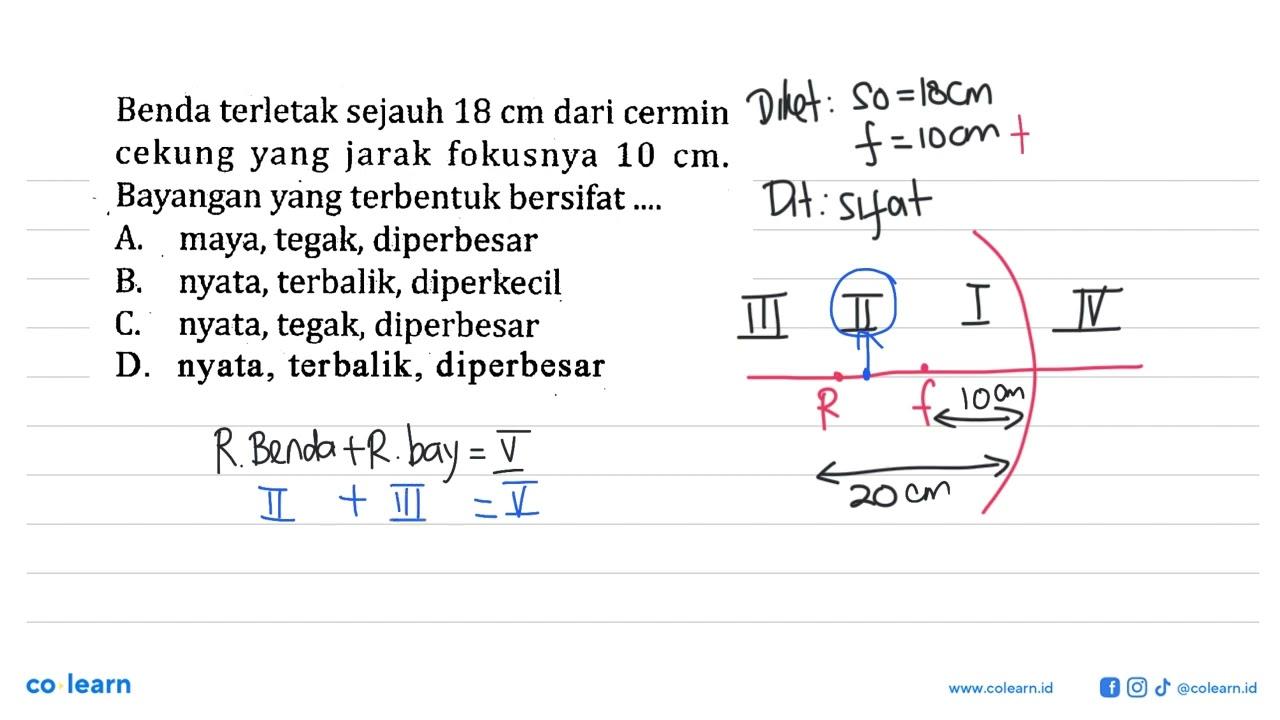 Benda terletak sejauh 18 cm dari cermin
cekung yang jarak fokusnya 10 cm.
Bayangan yang terbentuk bersifat ....
A. maya, tegak, diperbesar
B. nyata, terbalik, diperkecil
C. nyata, tegak, diperbesar
D. nyata, terbalik, diperbesar
R. Benda + R. bay = V
II + III = V
Diket: So = 18 cm
f = 10 cm +
Dit: sifat
III II I IV
R f 10 cm
20 cm
co learn
www.colearn.id @colearn.id